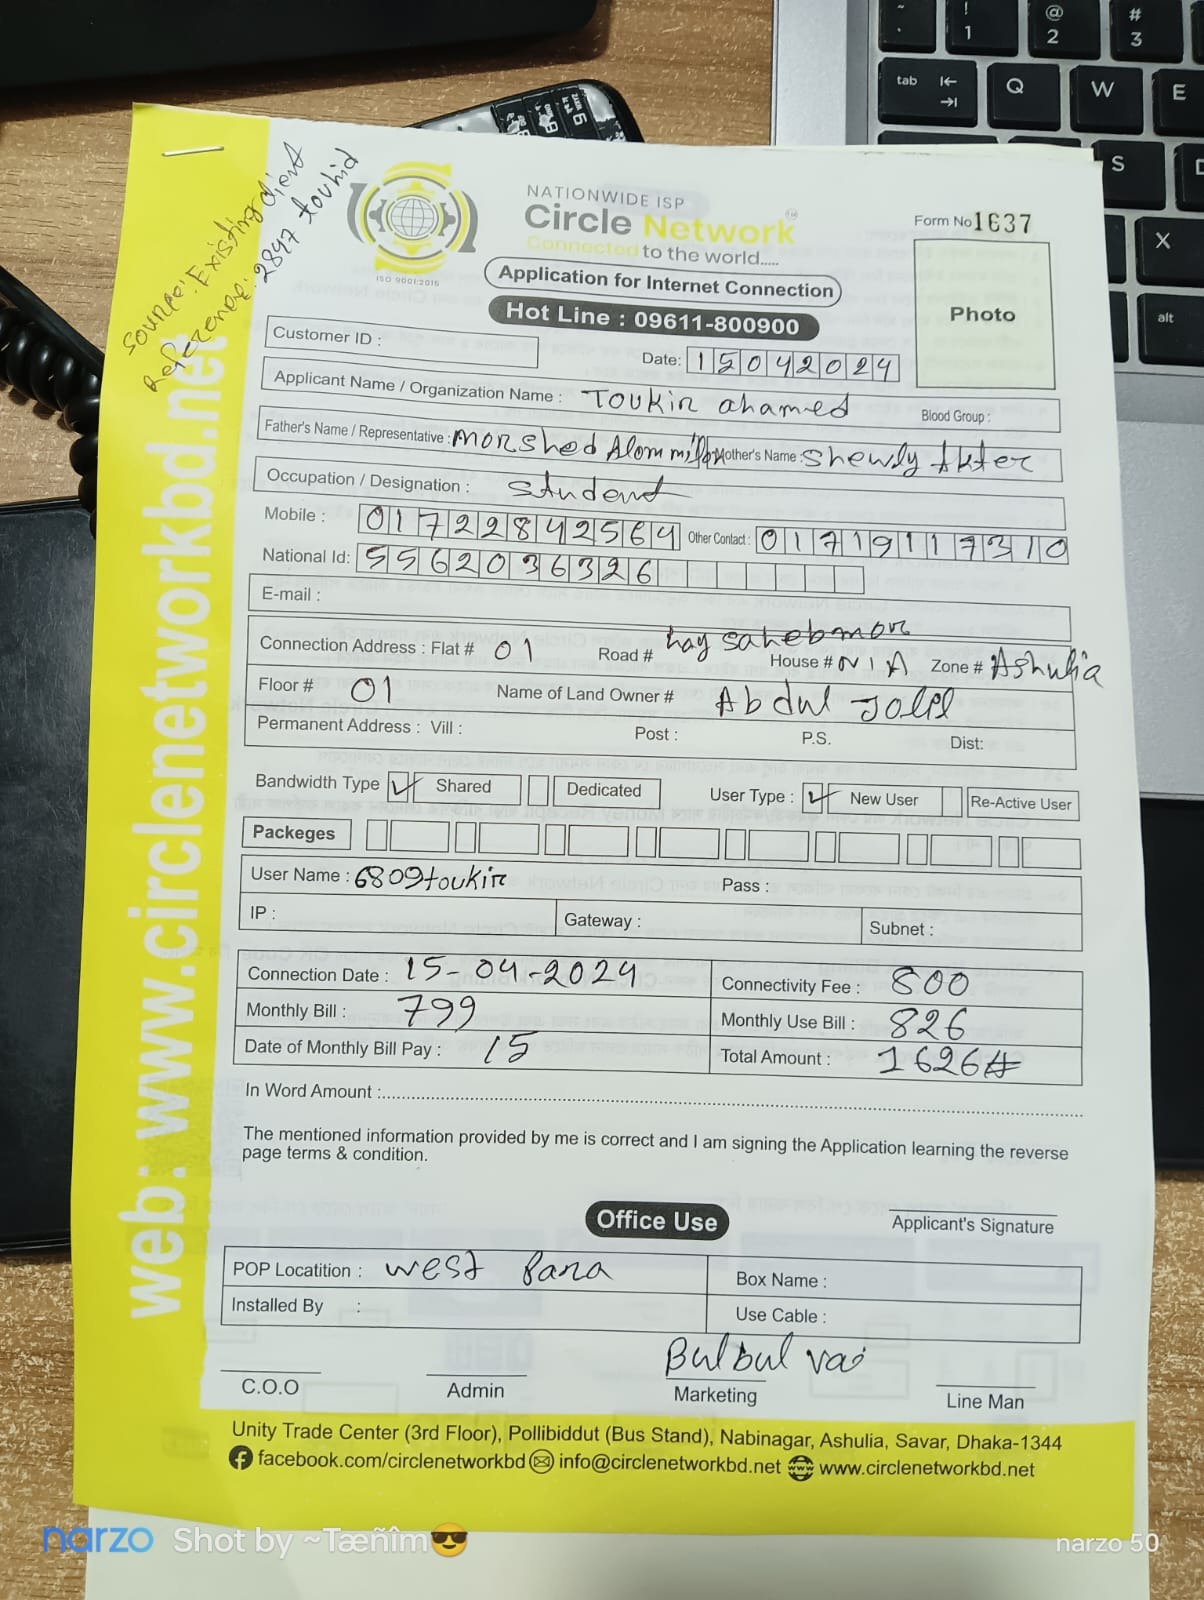 Source: Existing client
Reference: 2847 touhid
NATIONWIDE ISP
Circle Network
Connected to the world.....
ISO 9001:2015
Application for Internet Connection
Hot Line : 09611-800900
Form No 1637
Photo
Customer ID :
Date: 15042024
Applicant Name / Organization Name : Toukir ahamed Blood Group :
Father's Name / Representative : Morshed Alom Mother's Name : Shewly Akter
Occupation / Designation : Student
Mobile : 01722842564 Other Contact : 01719117310
National Id: 5562036326
E-mail :
Connection Address : Flat # 01 Road # hay sahebmor House # N/A Zone # Ashulia
Floor # 01 Name of Land Owner # Abdul Jolil
Permanent Address : Vill : Post : P.S. Dist:
Bandwidth Type ✓ Shared Dedicated User Type : ✓ New User Re-Active User
Packeges
User Name : 6809toukir Pass :
IP : Gateway : Subnet :
Connection Date : 15-04-2024 Connectivity Fee : 800
Monthly Bill : 799 Monthly Use Bill : 826
Date of Monthly Bill Pay : 15 Total Amount : 1626#
In Word Amount :
The mentioned information provided by me is correct and I am signing the Application learning the reverse
page terms & condition.
Applicant's Signature
Office Use
POP Locatition : West Para Box Name :
Installed By : Use Cable :
Bulbul vai
C.O.O Admin Marketing Line Man
Unity Trade Center (3rd Floor), Pollibiddut (Bus Stand), Nabinagar, Ashulia, Savar, Dhaka-1344
facebook.com/circlenetworkbd info@circlenetworkbd.net www.circlenetworkbd.net
web: www.circlenetworkbd.net
narzo Shot by ~Tæñîm😎 narzo 50
tab Q W E
S
X
alt
! 1 @ 2 # 3